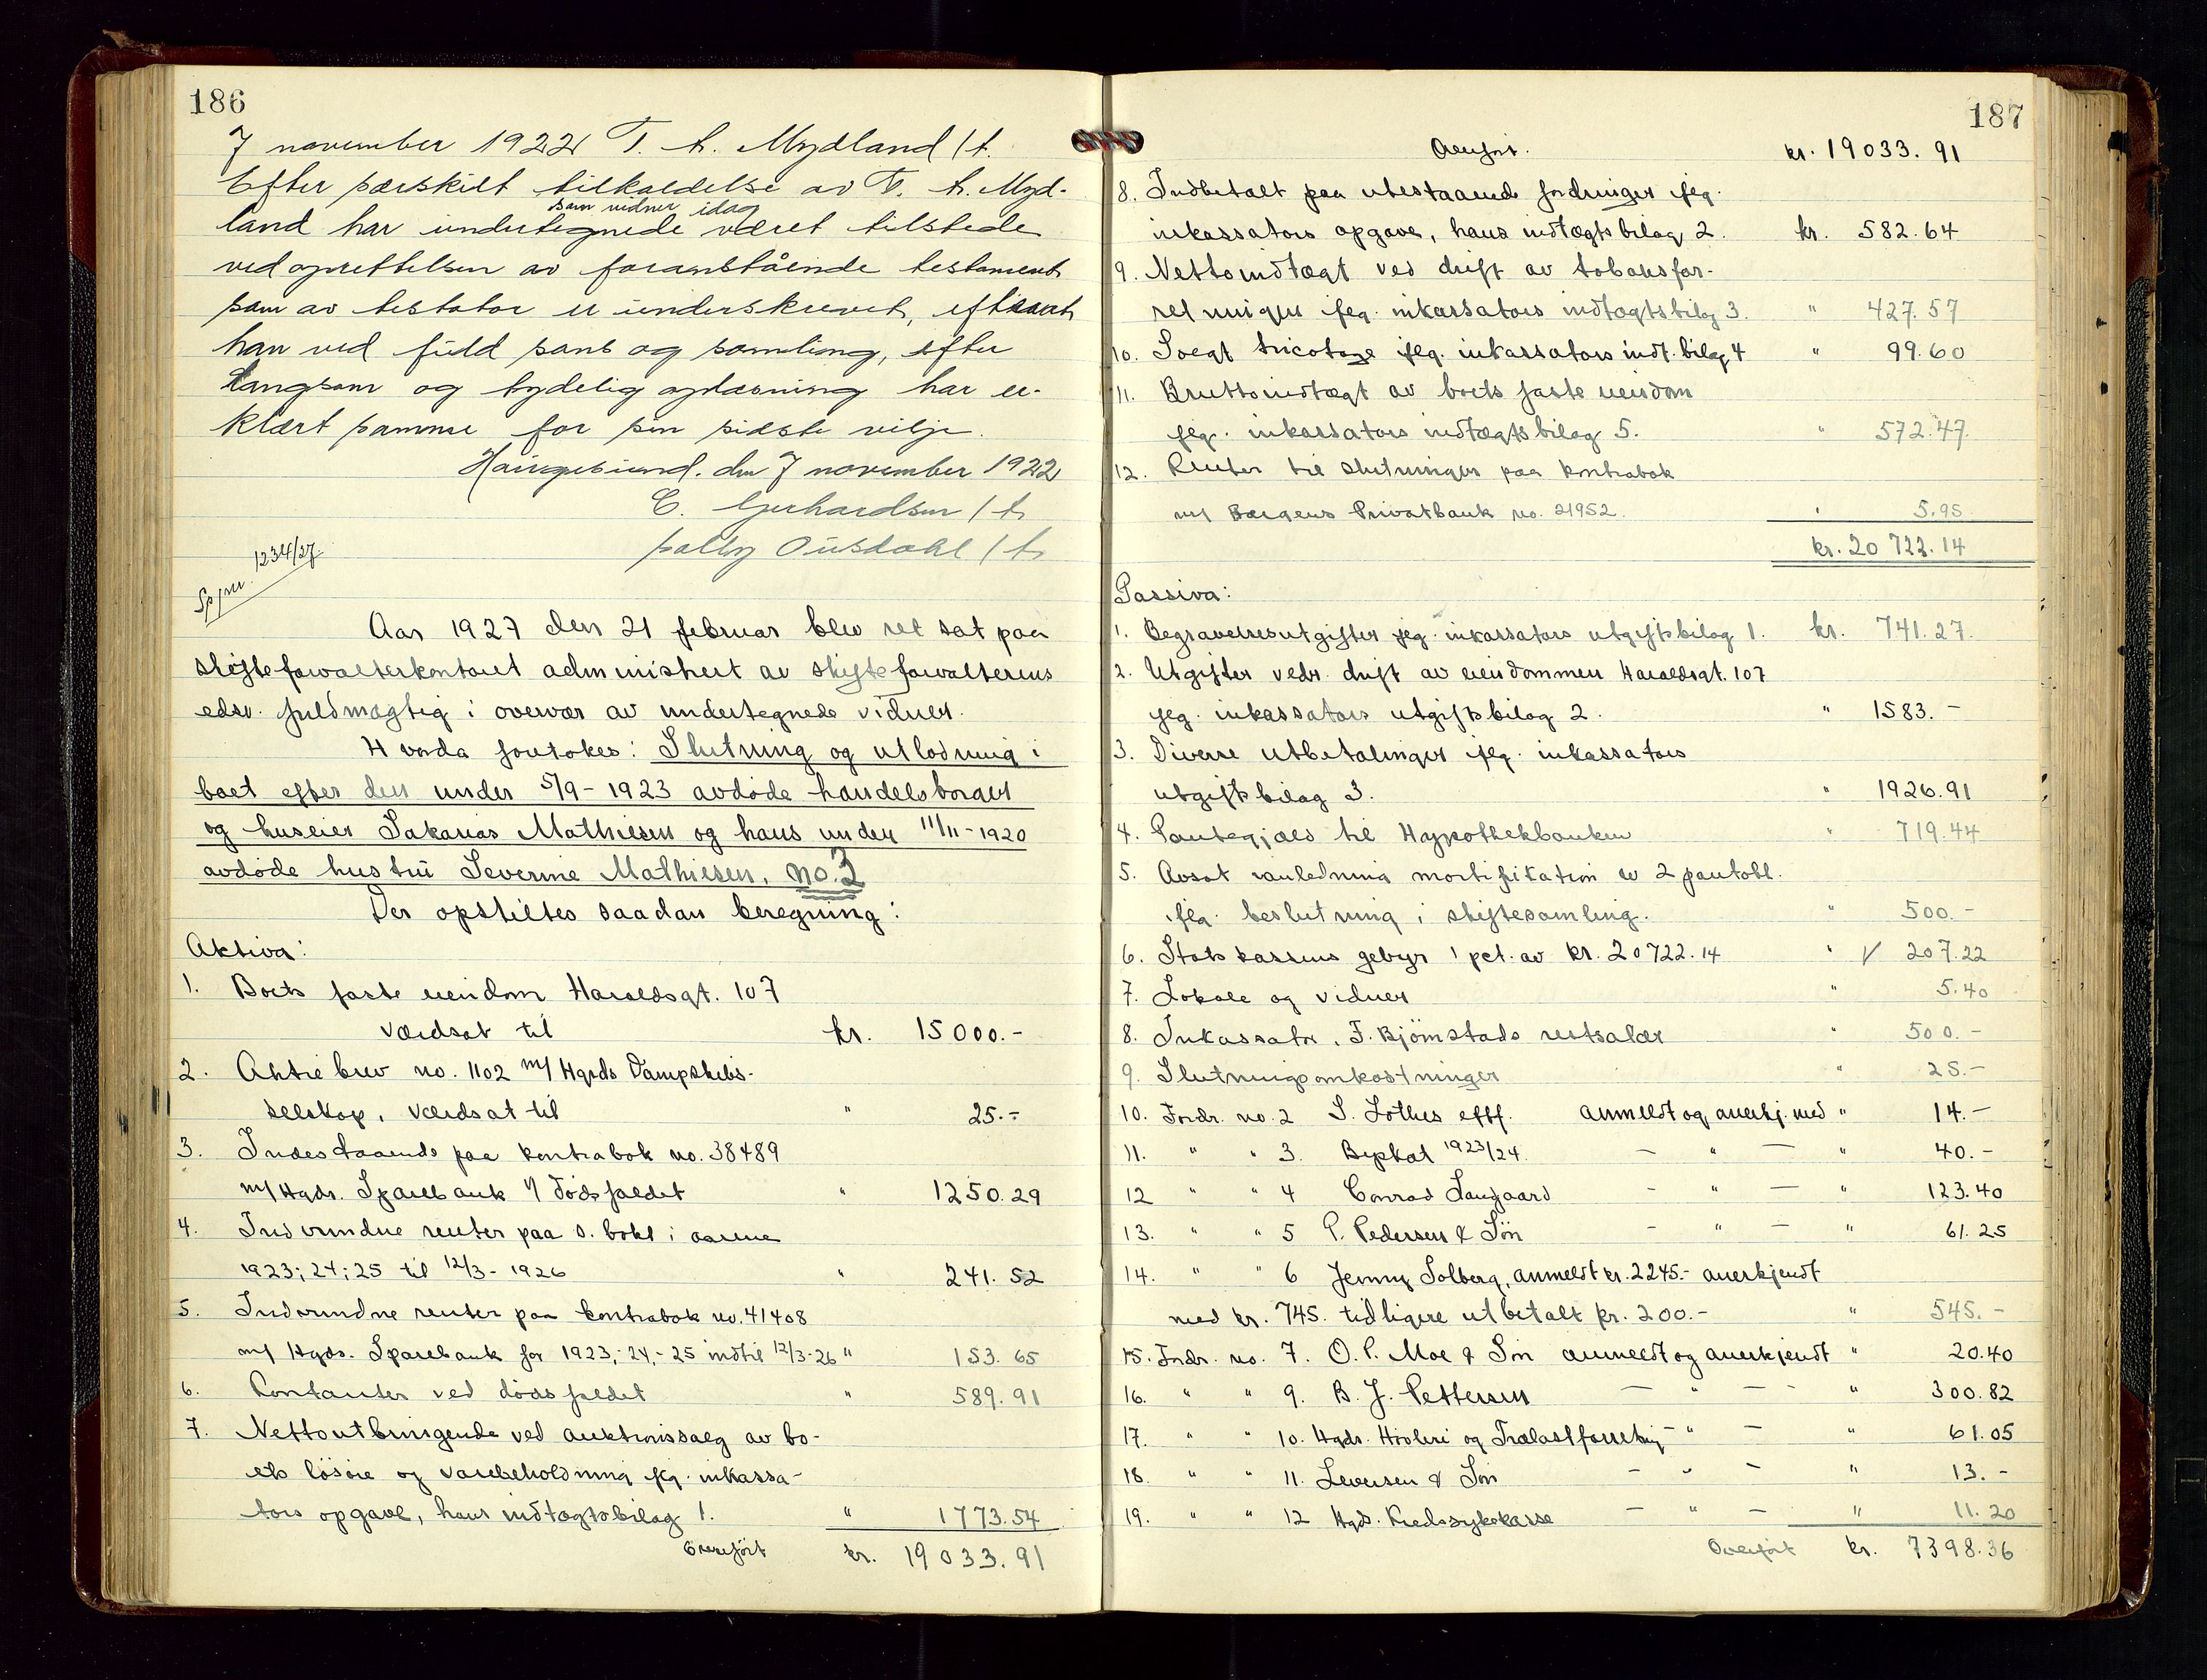 186
7 november 1922 T. h. Mydland /t.
Efter særskilt tilkaldelse av T. h. Myd-
som vidner idag
land har undertegnede været tilstede
ved oprettelsen av foranstående testament
som av testator er underskrevet, eftersat
han ved fuld sans og samling, efter
langsom og tydelig oplæsning har er-
klært samme for sin sidste vilje.
Haugesund. den 7 november 1922
C. Gerhardsen /t.
Solby Ousdahl /t.
1234/27
Aar 1927 den 21 februar blev ret sat paa
skifteforvalterkontoret administrert av skifteforvalterens
edsv. fuldmægtig i overvær av undertegnede vidner.
Hvorda foretokes: Slutning og utlodning i
boet efter den under 5/9-1923 avdøde handelsborger
og huseier Sakarias Mathiesen og hans under 11/11-1920
avdøde hustru Severine Mathiesen, no. 3
Der opstiltes saadan beregning:
Aktiva:
1. Boets faste eiendom Haraldsgt. 107
værdsat til kr. 15000.-
2. Aktiebrev no. 1102 m/ Hgds Dampskibs-
selskap, værdsat til " 25.-
3. Indestaaende paa kontrabok no. 38489
m/ Hgds. Sparebank v/ dødsfaldet " 1250.29
4. Indvundne renter paa s. bok i aarene
1923; 24; 25 til 12/3-1926 " 241.52
5. Indvundne renter paa kontrabok no. 41408
m/ Hgds. Sparebank for 1923,-24,-25 indtil 12/3-26 " 153.65
6. Kontanter ved dødsfaldet " 589.91
7. Nettoutbringende ved auktionssalg av bo-
ets løsøre og varebeholdning ifg. inkassa-
tors opgave, hans indtægtsbilag 1. " 1773.54
Overført kr. 19033.91
187
Overført. kr. 19033.91
8. Indbetalt paa utestaaende fordringer ifg.
inkassators opgave, hans indtægtsbilag 2. kr. 582.64
9. Nettoindtægt ved drift av tobaksfor-
retninger ifg. inkassators indtægtsbilag 3. " 427.57
10. Solgt tricotage ifg. inkassators indt. bilag 4 " 99.60
11. Bruttoindtægt av boets faste eiendom
ifg. inkassators indtægtsbilag 5. " 572.47.
12. Renter til slutninger paa kontrabok
m/ Bergens Privatbank no. 21952. " 5.95
kr. 20722.14
Passiva:
1. Begravelsesutgifter ifg. inkassators utgiftsbilag 1. kr. 741.27.
2. Utgifter vedr. drift av eiendommen Haraldsgt. 107
ifg. inkassators utgiftsbilag 2. " 1583.-
3. Diverse utbetalinger ifg. inkassators
utgiftsbilag 3. " 1926.91
4. Pantegjæld til Hypothekbanken " 719.44
5. Avsat i anledning mortifikation av 2 pantobl.
ifg. beslutning i skiftesamling. " 500.-
6. Statskassens gebyr 1 pct. av kr. 20722.14 " V 207.22
7. Lokale og vidner " 5.40
8. Inkassator F. Bjørnstads restsalær " 500.-
9. Slutningsomkostninger " 25.-
10. Fordr. no. 2 S. Lothes eftf. anmeldt og anerkj. med " 14.-
11. " " 3. Byskat 1923/24. - " - " 40.-
12 " " 4 Conrad Langaard - " - " 123.40
13. " " 5 P. Pedersen & Søn - " - " 61.25
14. " " 6 Jenny Solberg, anmeldt kr. 2245.- anerkjendt
med kr. 745. tidligere utbetalt kr. 200.- " 545.-
15. Fordr. no. 7. O. P. Moe & Søn anmeldt og anerkjendt " 20.40
16. " " 9. B. J. Pettersen - " - " 300.82
17. " " 10. Hgds. Høvleri og Trælastforretning - " - " 61.05
18. " " 11. Seversen & Søn - " - " 13.-
19. " " 12 Hgds. Kredssykekasse - " - " 11.20
Overført kr. 7398.36